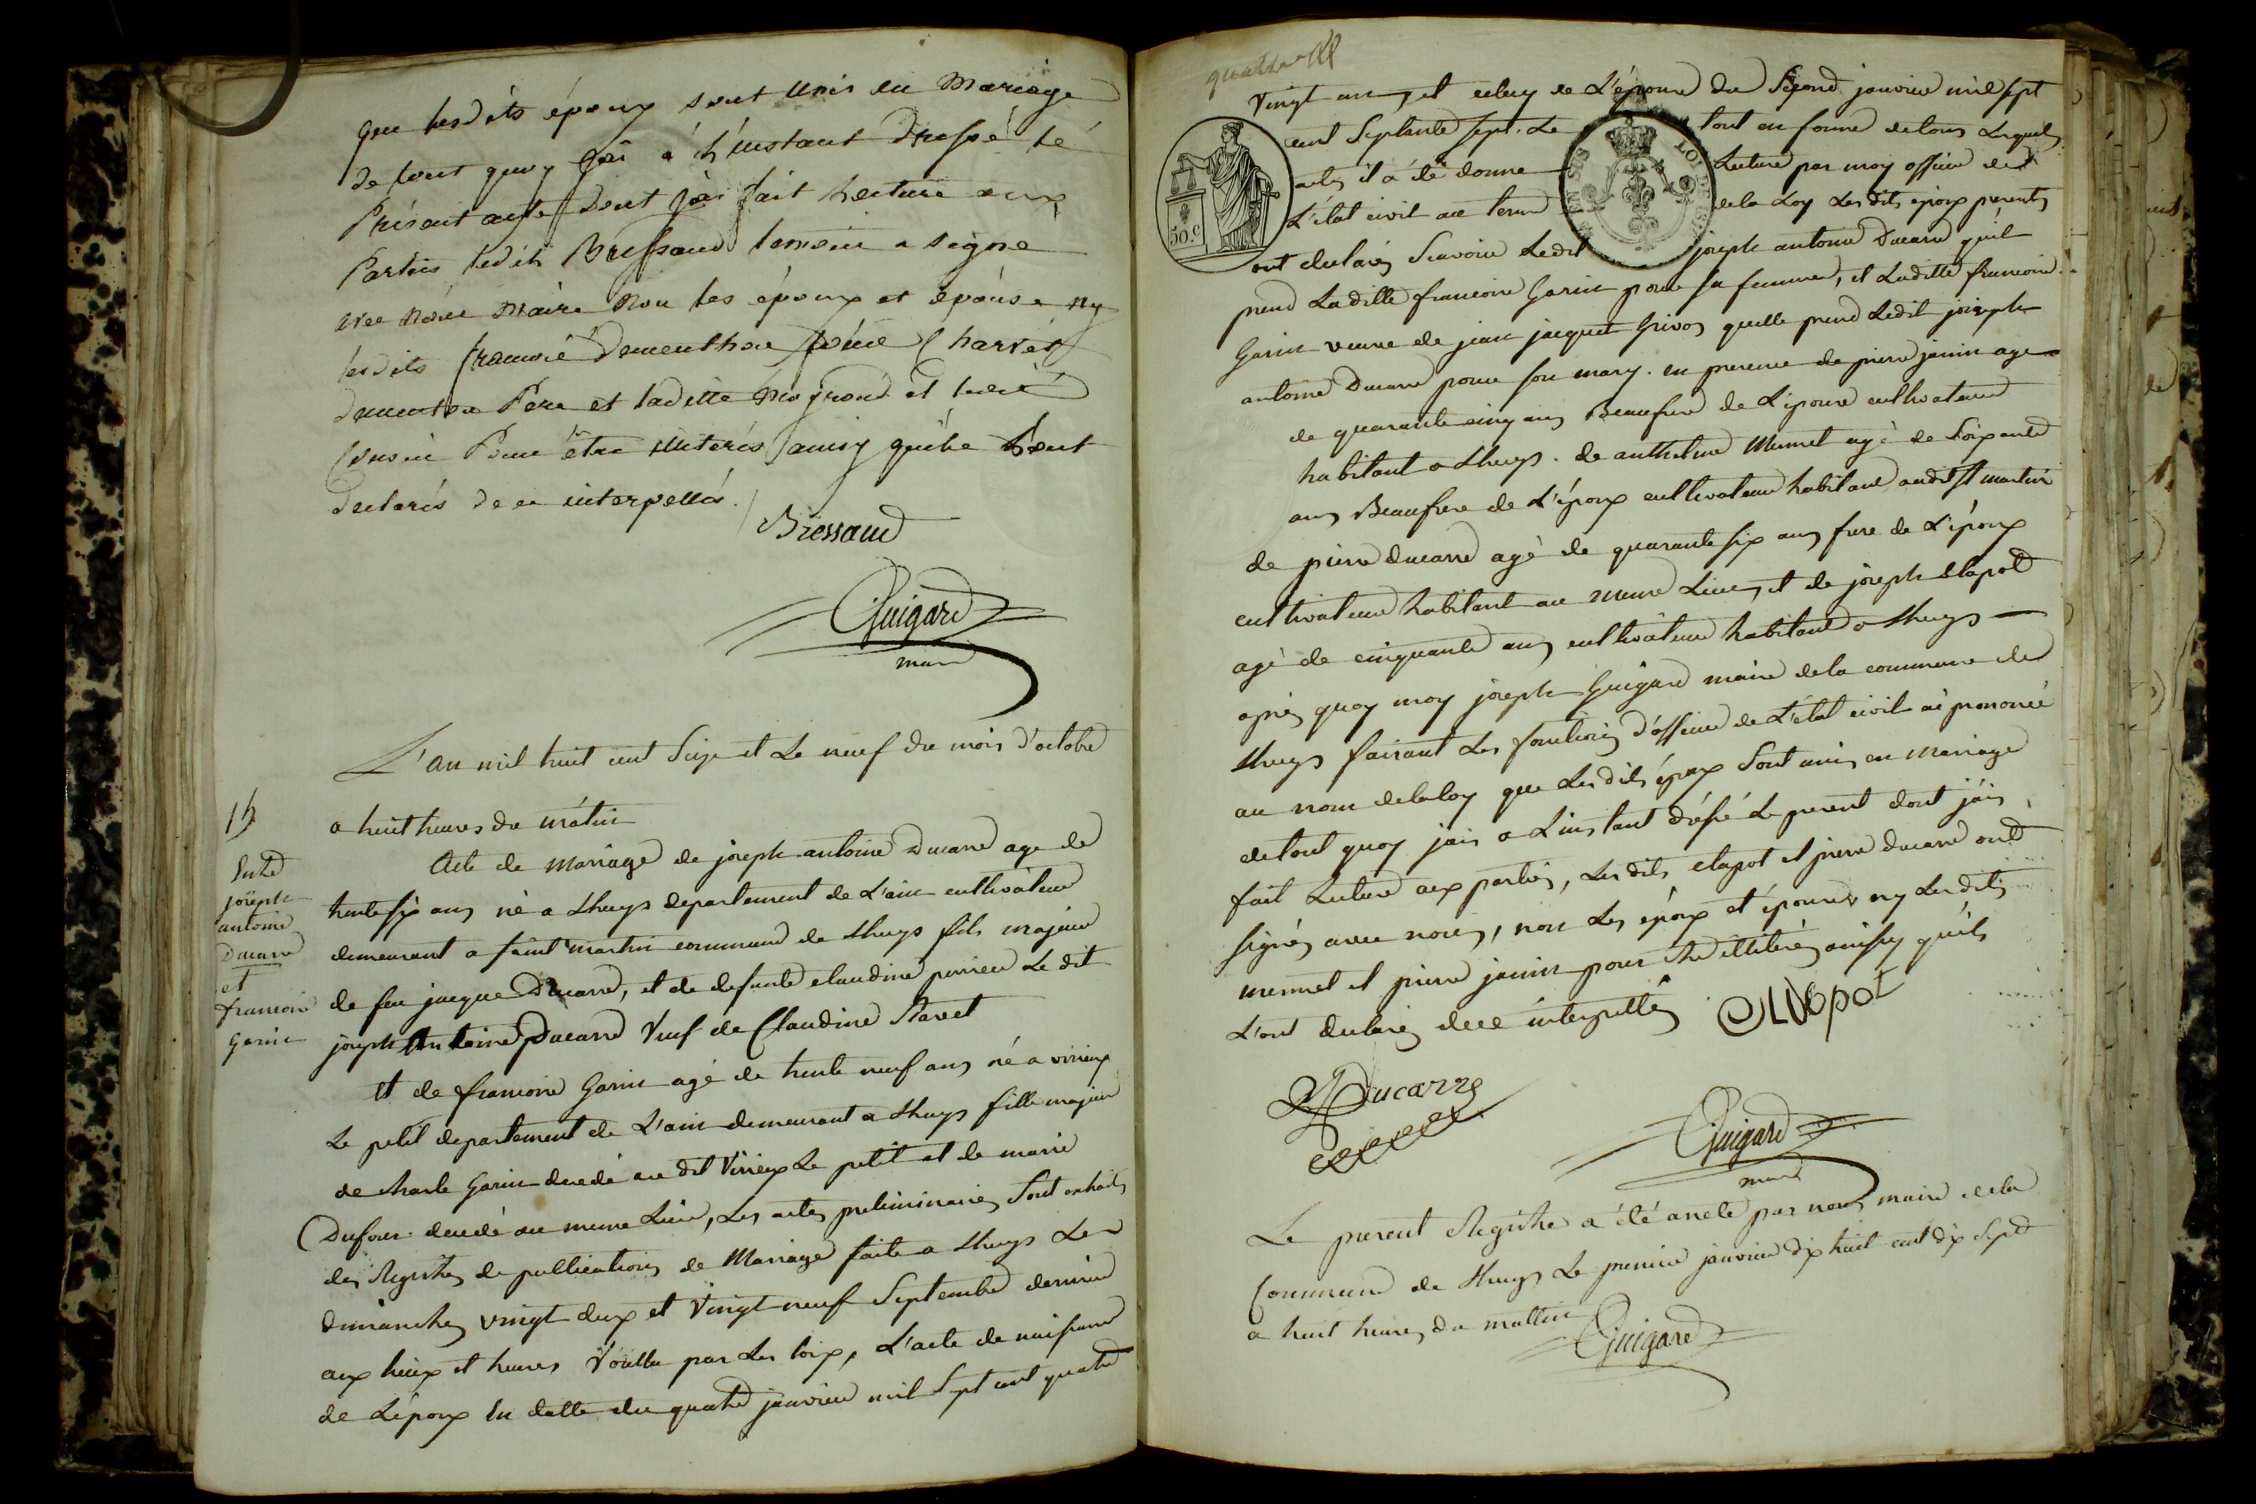 que lesdits époux sont unis en Mariage
de tout quoy jai à l'instant Dressé lé
Présent acte dont jai fait lecture aux
Parties ledit Bressand temoin a signé
avec nous Maire non les époux et épouse ny
lesdits françoié Dementhon
Dementhon Père et laditte et ledit
Pour être illiterés ainsy qu'ils l'ont
declarés de ce interpellés.
Bressand
Guigard
maire
L'an mil huit cent Seize et Le neuf du mois d'octobre
a huit heures du mâtin
15
Acte de Mariage de joseph antoine Ducarre age de
joseph
antoine
Ducarre
et
francoise
Garin
trente six ans né a Lhuys departement de L'ain cultivâteur
demeurant a saint martin commune de Lhuys fils majeur
de feu jacque Ducarre, et de defunte claudine perrier Le dit
joseph Antoine Ducarre Veuf de Claudine Ravet
Et de francoise Garin agé de trente neuf ans né a virieux
Le petit departement de L'ain demeurant a Lhuys fille majeur
de charle Garin decedé au dit Virieux Le petit et de marie
Dufour decedé au meme Lieu, Les actes preliminaires Sont extraits
des Registres de publications de Mariage faite a Lhuys Les
dimanches vingt deux et vingt neuf Septembre dernier
aux lieux et heures Voullu par Les loix, L'acte de naissance
de L'epoux En datte du quatre janvier mil Sept cent quatre
vingt un, et celuy de L'épouse du Segond janvier mil sept
cent Septante sept. Le tout en forme de tous Lesquels
50.C
actes il a été donné Lecture par moy officier de
L'état civil au terme de la Loy Les dits époux presents
ont declarés Scavoir Ledit joseph antoine Ducarre qu'il
prend Laditte francoise Garin pour sa femme, et Laditte francoise
Garin veuve de jean jacquet Grivoz quelle prend Ledit joseph
antoine Ducarre pour son mary. en presence de pierre janin age
de quarante cinq ans Beaufrere de L'épouse cultivateur
habitant a Lhuys. de anthelme Mermet agé de Soixante
ans Beaufrere de L'époux cultivateur habitant audit St martin
de pierre ducarre agé de quarante six ans frere de L'époux
cultivateur habitant au meme Lieu, et de joseph Clapot
agé de cinquante ans cultivâteur habitant a Lhuys
apres quoy moy joseph Guigard maire de la commune de
Lhuys faisant Les fonctions d'officier de L'état civil ai prononcé
au nom de la loy que Lesdits époux Sont unis en Mariage
de tout quoy jais a Linstant dréssé Le present dont jais
fait Lecture aux parties, Les dits clapot et pierre ducarre ont
signés avec nous, non Les époux et épouse ny Lesdits
mermet et pierre janin pour être illiterés ainsy quils
L'ont declarés de ce interpellés
CLApot
PDucarre
Guigard
maire
Le present Registre a été arreté par nous maire de la
Commune de Lhuys Le premier janvier dix huit cent dix Sept
a huit heures du mattin
Guigard